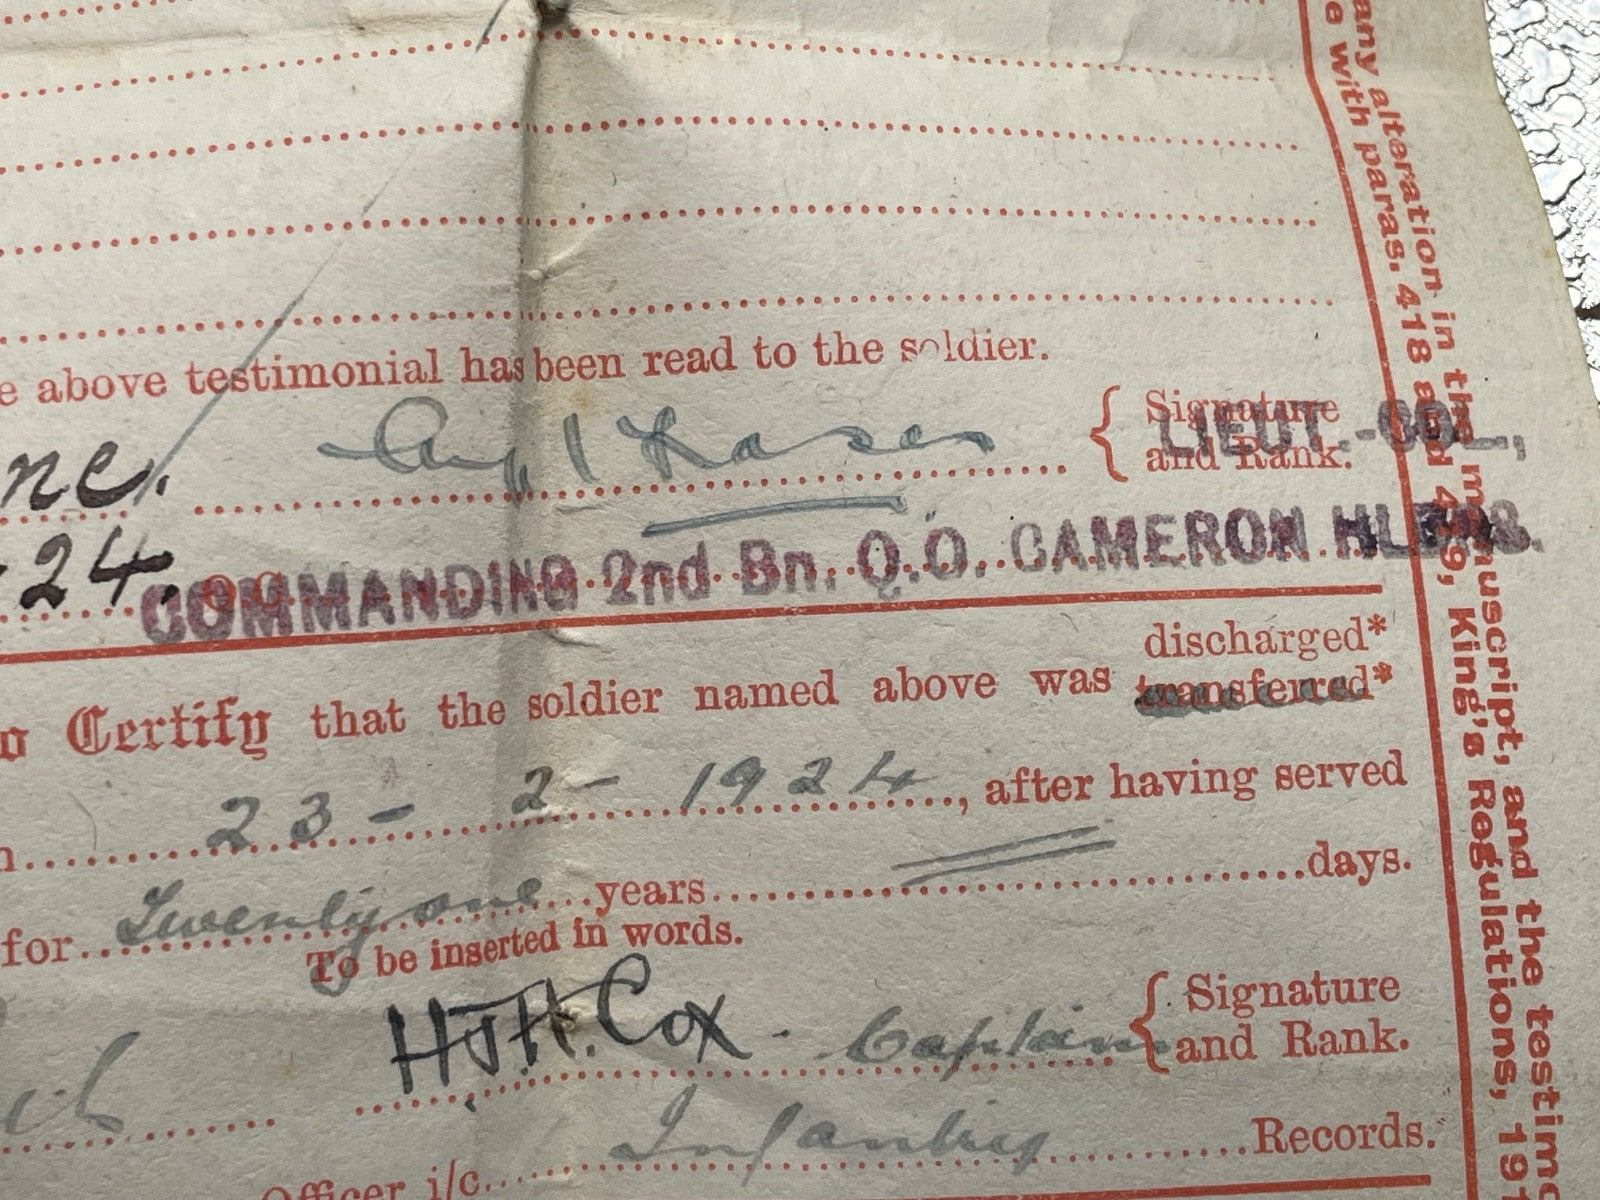 e above testimonial has been read to the soldier.
ne.
Signature
and Rank.
LIEUT.-COL.,
24.
COMMANDING 2nd Bn. Q.O. CAMERON HLDRS.
Certify that the soldier named above was discharged*
transferred*
23-2-1924, after having served
for Twenty one years = days.
To be inserted in words.
Cox. Captain Signature
and Rank.
Officer i/c Infantry Records.
any alteration in the manuscript, and the testimo
e with paras. 418 and 419, King's Regulations, 19